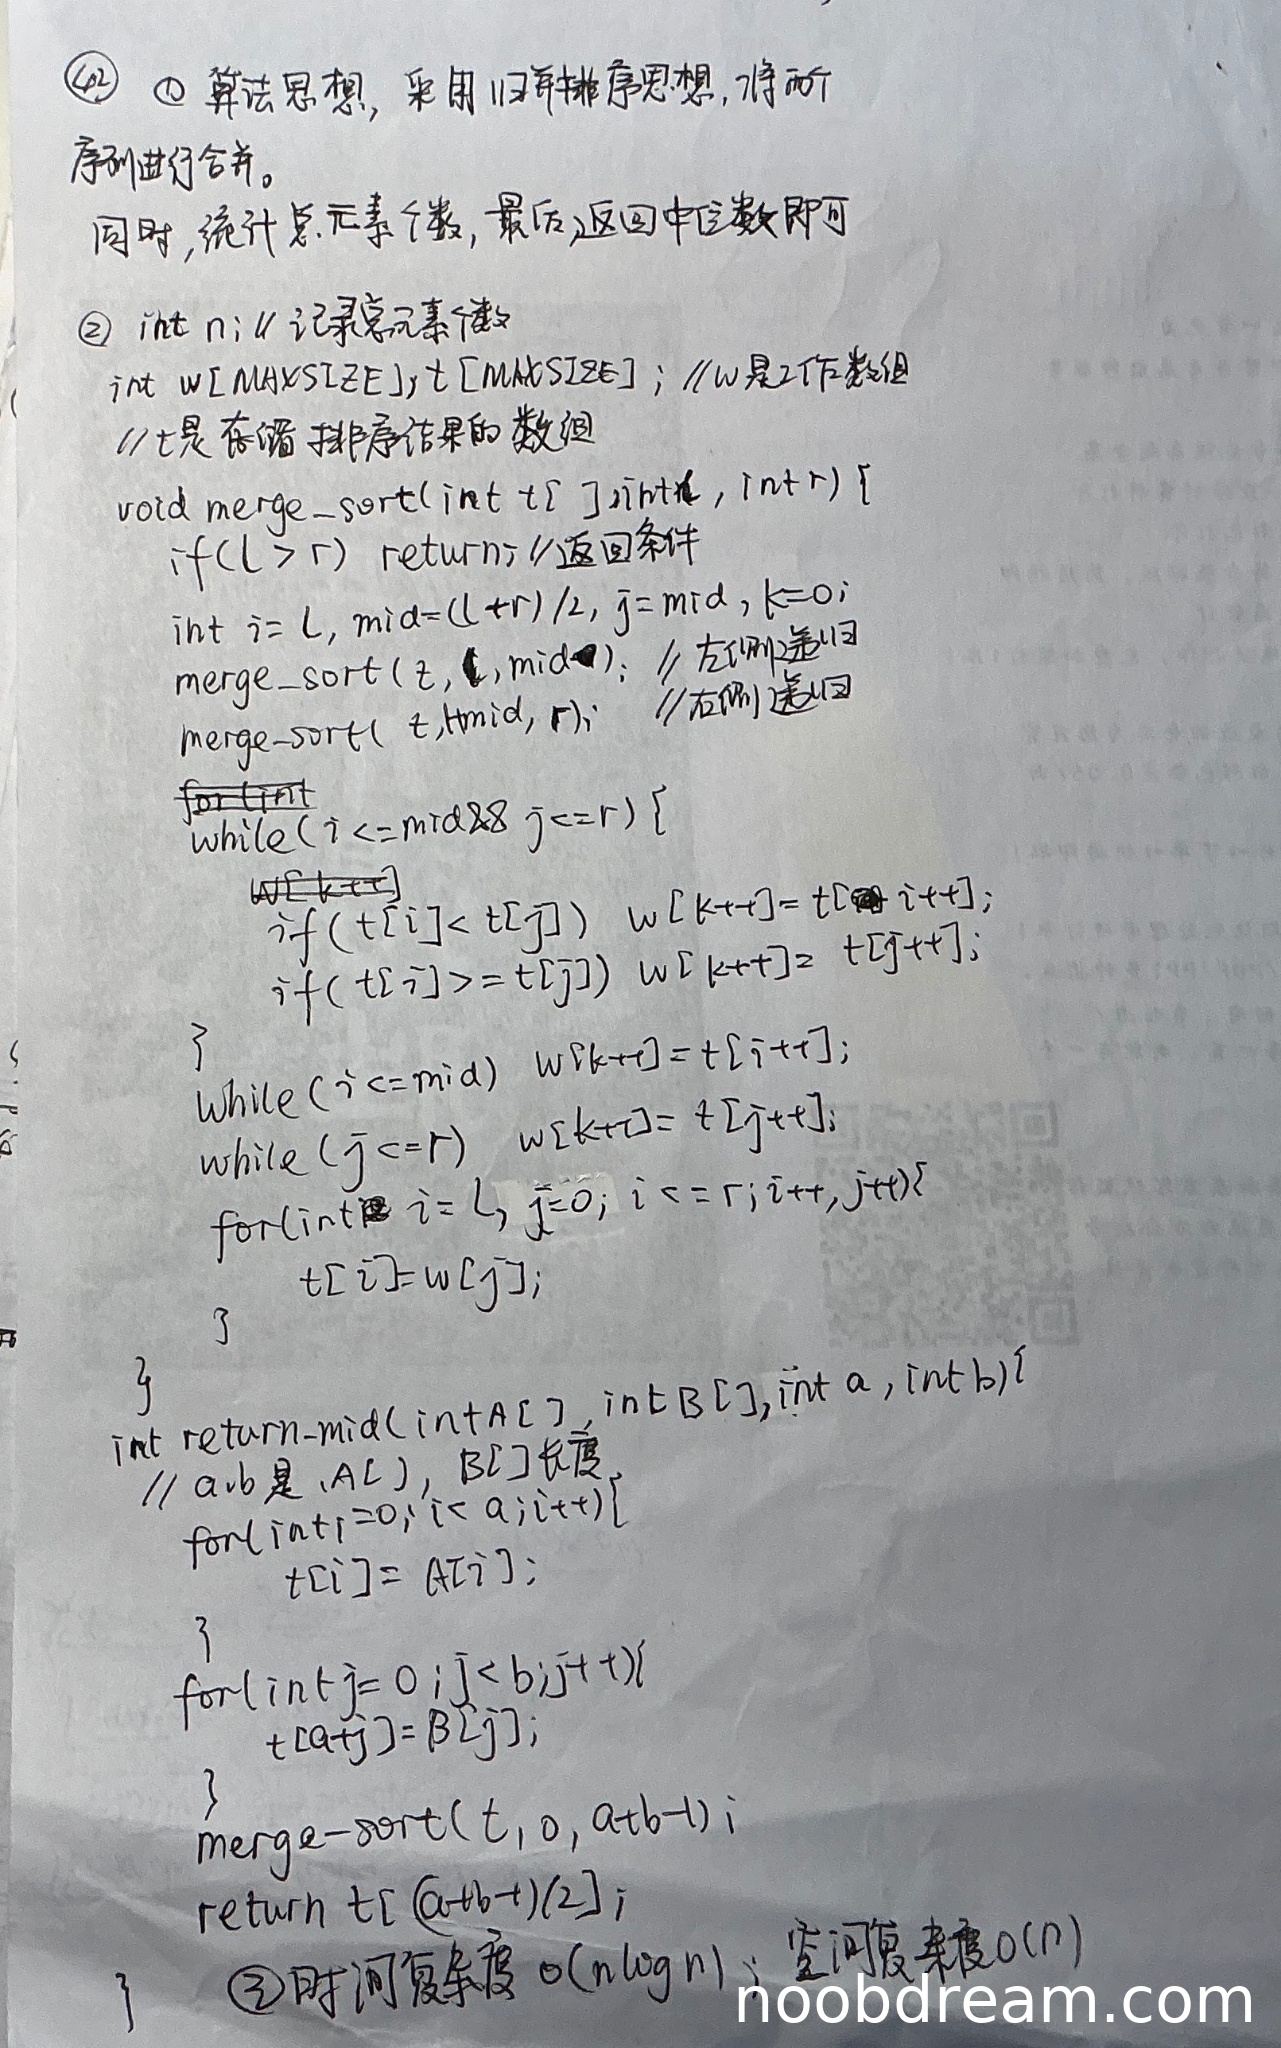 42 ① 算法思想，采用归并排序思想，将两个
序列进行合并。
同时，统计总元素个数，最后返回中位数即可
② int n; // 记录总元素个数
int w[MAXSIZE], t[MAXSIZE]; //w是工作数组
//t是存储排序结果的数组
void merge_sort(int t[ ], int l, int r) {
if(l > r) return; //返回条件
int i= l, mid=(l+r)/2, j=mid, k=0;
merge_sort(t, l, mid); //左侧递归
merge_sort( t, 1+mid, r); //右侧递归
for(int
while(i<=mid&& j<=r) {
w[k++]
if(t[i]< t[j]) w[k++]= t[i++];
if(t[i]>=t[j]) w[k++]= t[j++];
}
while(i<=mid) w[k++]=t[i++];
while(j<=r) w[k++]= t[j++];
for(int i= l, j=0; i<=r; i++, j++){
t[i]=w[j];
}
}
int return_mid(int A[], int B[], int a, int b){
// a、b是 A[], B[]长度
for(int i=0; i< a; i++){
t[i]= A[i];
}
for(int j= 0; j< b; j++){
t[a+j]=B[j];
}
merge-sort(t, 0, a+b-1);
return t[(a+b-1)/2];
} ③时间复杂度 O(nlogn); 空间复杂度O(n)
noobdream.com